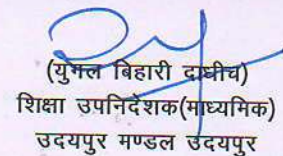 (युगल बिहारी दाधीच)
शिक्षा उपनिदेशक(माध्यमिक)
उदयपुर मण्डल उदयपुर